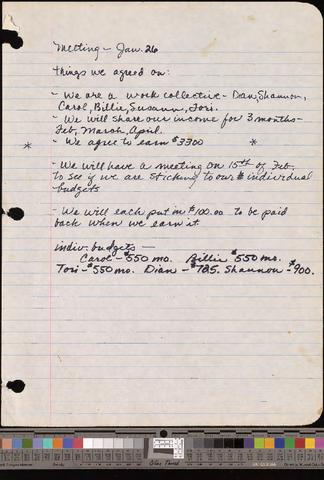 Meeting - Jan. 26
Things we agreed on:
- We are a work collective - Dian, Shannon,
Carol, Billie, Susann, Tori.
- We will share our income for 3 months -
Feb, March, April.
* - We agree to earn $3300 *
- We will have a meeting on 15th of Feb.
to see if we are sticking to our individual
budgets
- We will each put in $100.00 to be paid
back when we earn it.
indiv. budgets -
Carol - $550 mo. Billie $550 mo.
Tori - $550 mo. Dian - $785. Shannon - $900.